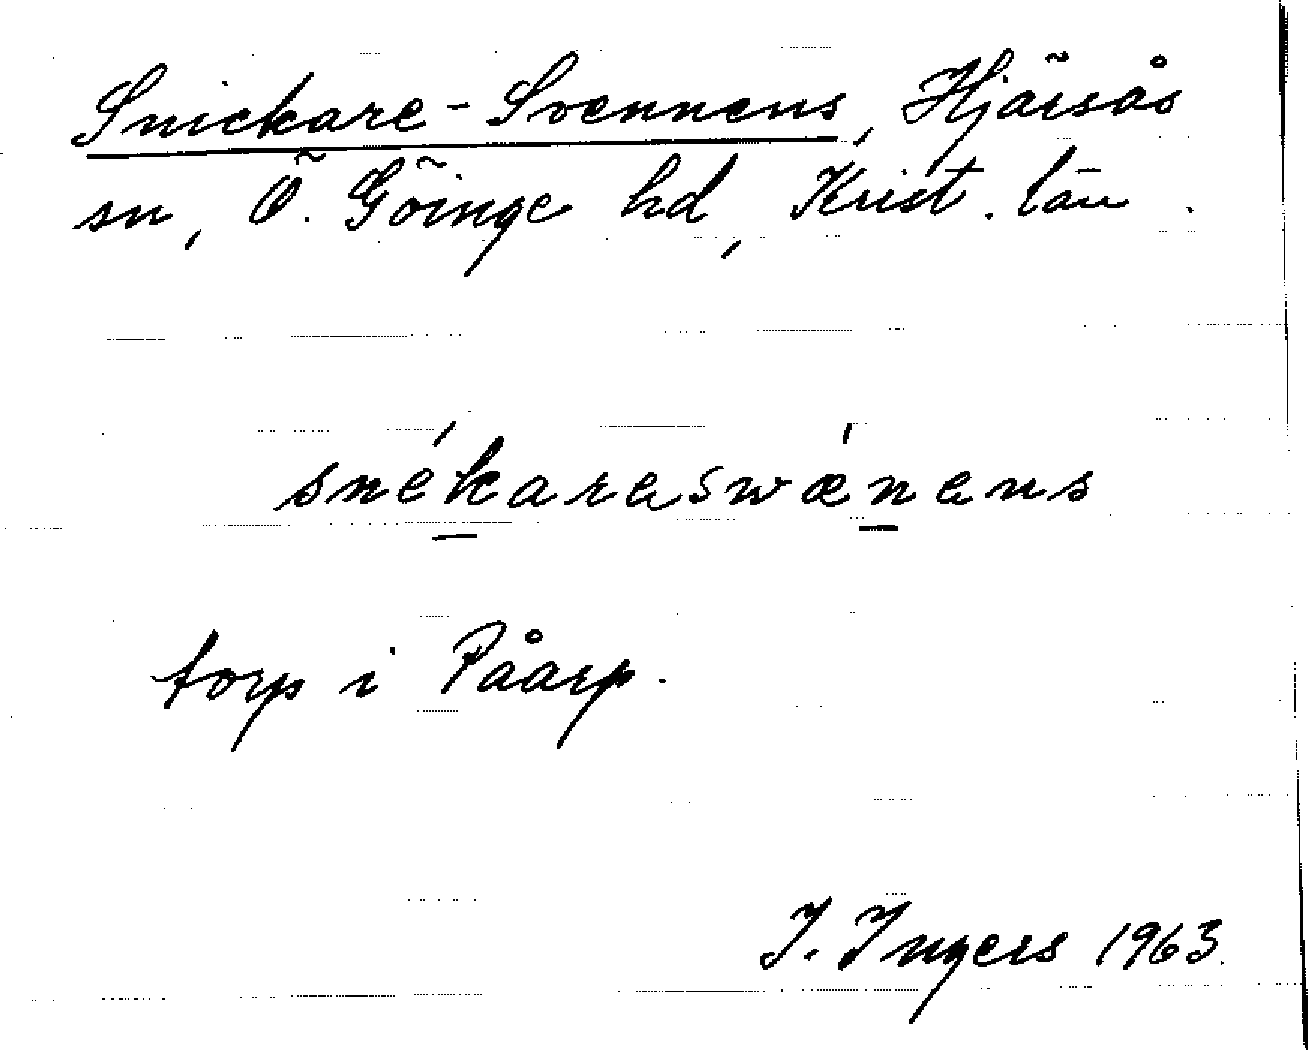 Snickare-Svennens, Hjärsås
sn, Ö. Göinge hd, Krist. län.
snékaraswǽnens
torp i Påarp.
I. Ingers 1963.